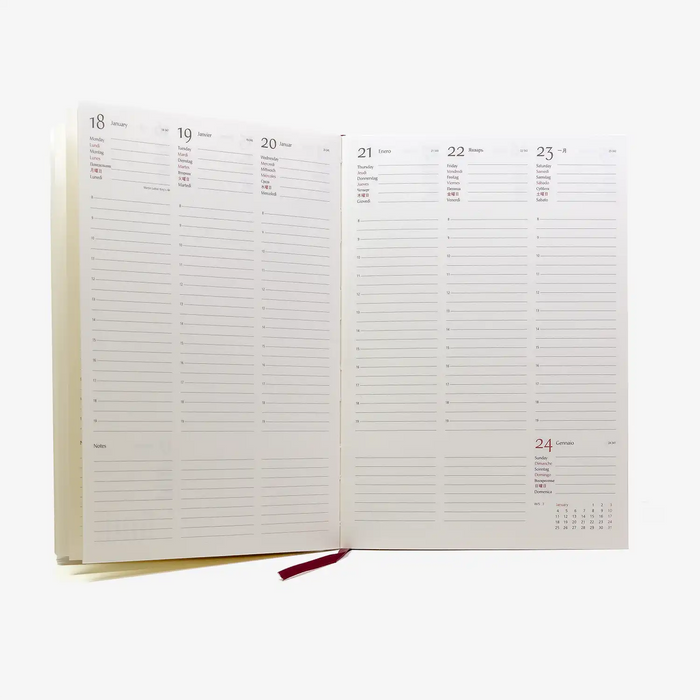 18 January
Monday
Lundi
Montag
Lunes
Понедельник
月曜日
Lunedì
19 Janvier
Tuesday
Mardi
Dienstag
Martes
Вторник
火曜日
Martedì
20 Januar
Wednesday
Mercredi
Mittwoch
Miércoles
Среда
水曜日
Mercoledì
Notes
21 Enero
Thursday
Jeudi
Donnerstag
Jueves
Четверг
木曜日
Giovedì
22 Январь
Friday
Vendredi
Freitag
Viernes
Пятница
金曜日
Venerdì
23 一月
Saturday
Samedi
Samstag
Sábado
Суббота
土曜日
Sabato
24 Gennaio
Sunday
Dimanche
Sonntag
Domingo
Воскресенье
日曜日
Domenica
January 1 2 3
4 5 6 7 8 9 10
11 12 13 14 15 16 17
18 19 20 21 22 23 24
25 26 27 28 29 30 31